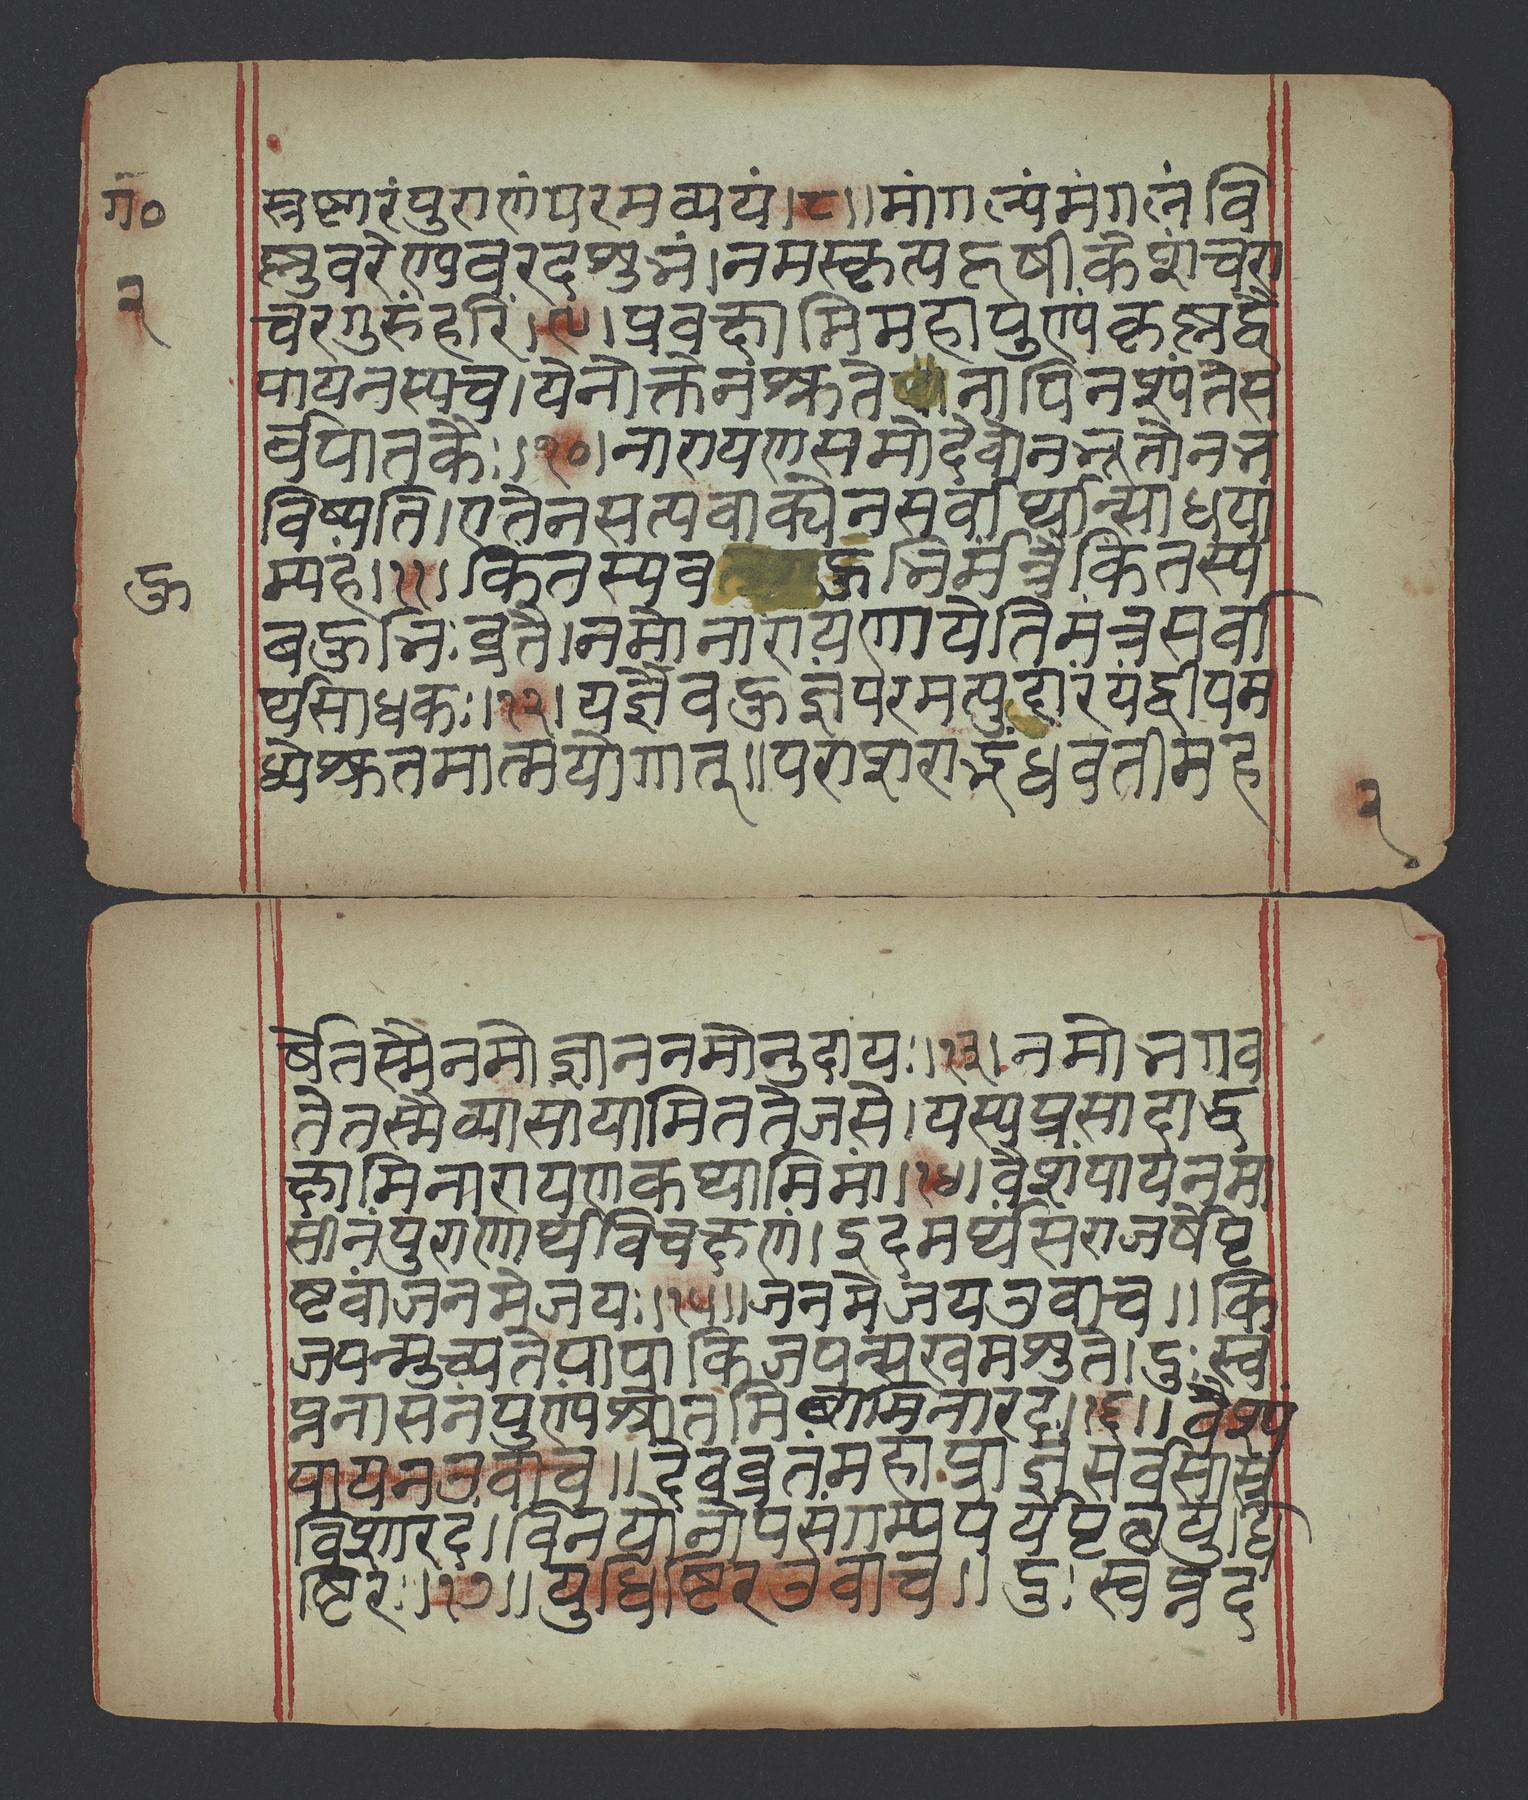 ग०
२
स्रष्टारंपुराणंपरमव्ययं।८।।मांगल्यंमंगलंवि
ष्णुवरेण्यवरदंशुभं।नमस्कृत्यहृषीकेशंचरा
चरगुरुंहरिं।९।प्रवक्ष्यामिमहापुण्यंकृष्णद्वै
पायनस्यच।येनोक्तेनश्रुतेनापिनश्यंतेस
र्वपातकैः।१०।नारायणसमोदेवोनभूतोनभ
विष्यति।एतेनसत्यवाक्येनसर्वार्थान्साधया
म्यहं।११।किंतस्यब हुभिर्मंत्रैकिंतस्य
हु
बहुभिःव्रतै।नमोनारायणायेतिमंत्रसर्वा
र्थसाधकः।१२।यज्ञैबहुज्ञंपरमत्युदारंयंद्वीपम
ध्येश्रुतमात्मयोगात्॥पराशराद्गंधवतीमह
२
र्षेतस्मैनमोज्ञाननमोनुदायः।१३।नमोभगव
तेतस्मैव्यासायामिततेजसे।यस्यप्रसादाद्व
क्ष्यामिनारायणकथामिमां।१४।वैशंपायनमा
सीनंपुराणार्थविचक्षणं।इदमर्थंसराजर्षेपृ
ष्टवांजनमेजयः।१५॥जनमेजयउवाच॥किं
जपन्मुच्यतेपापाकिंजपन्सुखमश्नुते।दुःस्व
प्ननासनंपुण्यंश्रोतमिच्छामिनारद।१६॥वैशं
पायनउवाच॥देवव्रतंमहाप्राज्ञंसर्वसास्त्र
विशारदं।विनयोनोपसंगम्यपर्यपृछयुधि
ष्टिरः।१७॥युधिष्टिरउवाच॥दुःस्वप्नद